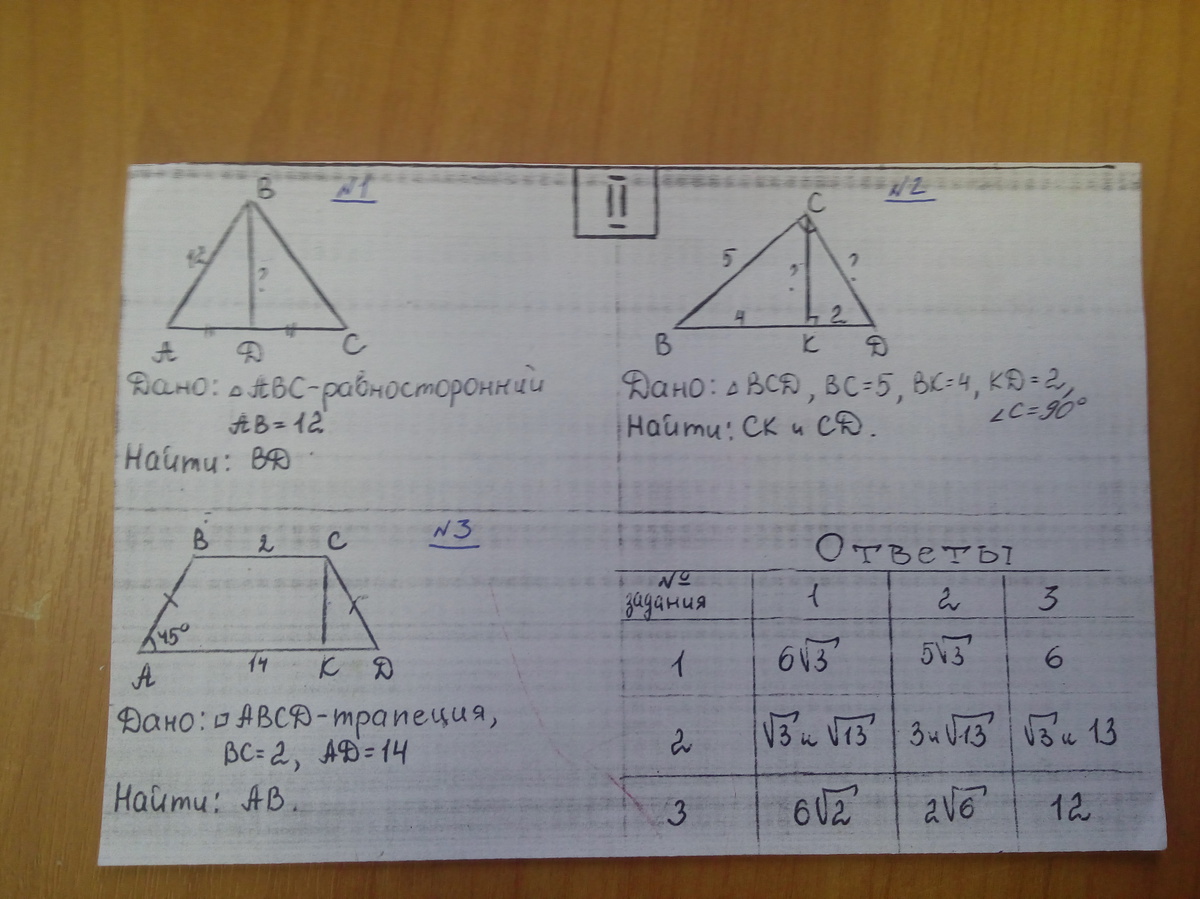 II
№1
B
12
?
A
D
C
Дано: △ ABC-равносторонний
AB=12
Найти: BD
№2
C
5
?
?
4
2
B
K
D
Дано: △ BCD, BC=5, BK=4, KD=2,
∠C=90°
Найти: CK и CD.
№3
B
2
C
45°
A
14
K
D
Дано: □ ABCD-трапеция,
BC=2, AD=14
Найти: AB.
Ответы
№ задания 1 2 3
1 6√3 5√3 6
2 √3 и √13 3 и √13 √3 и 13
3 6√2 2√6 12